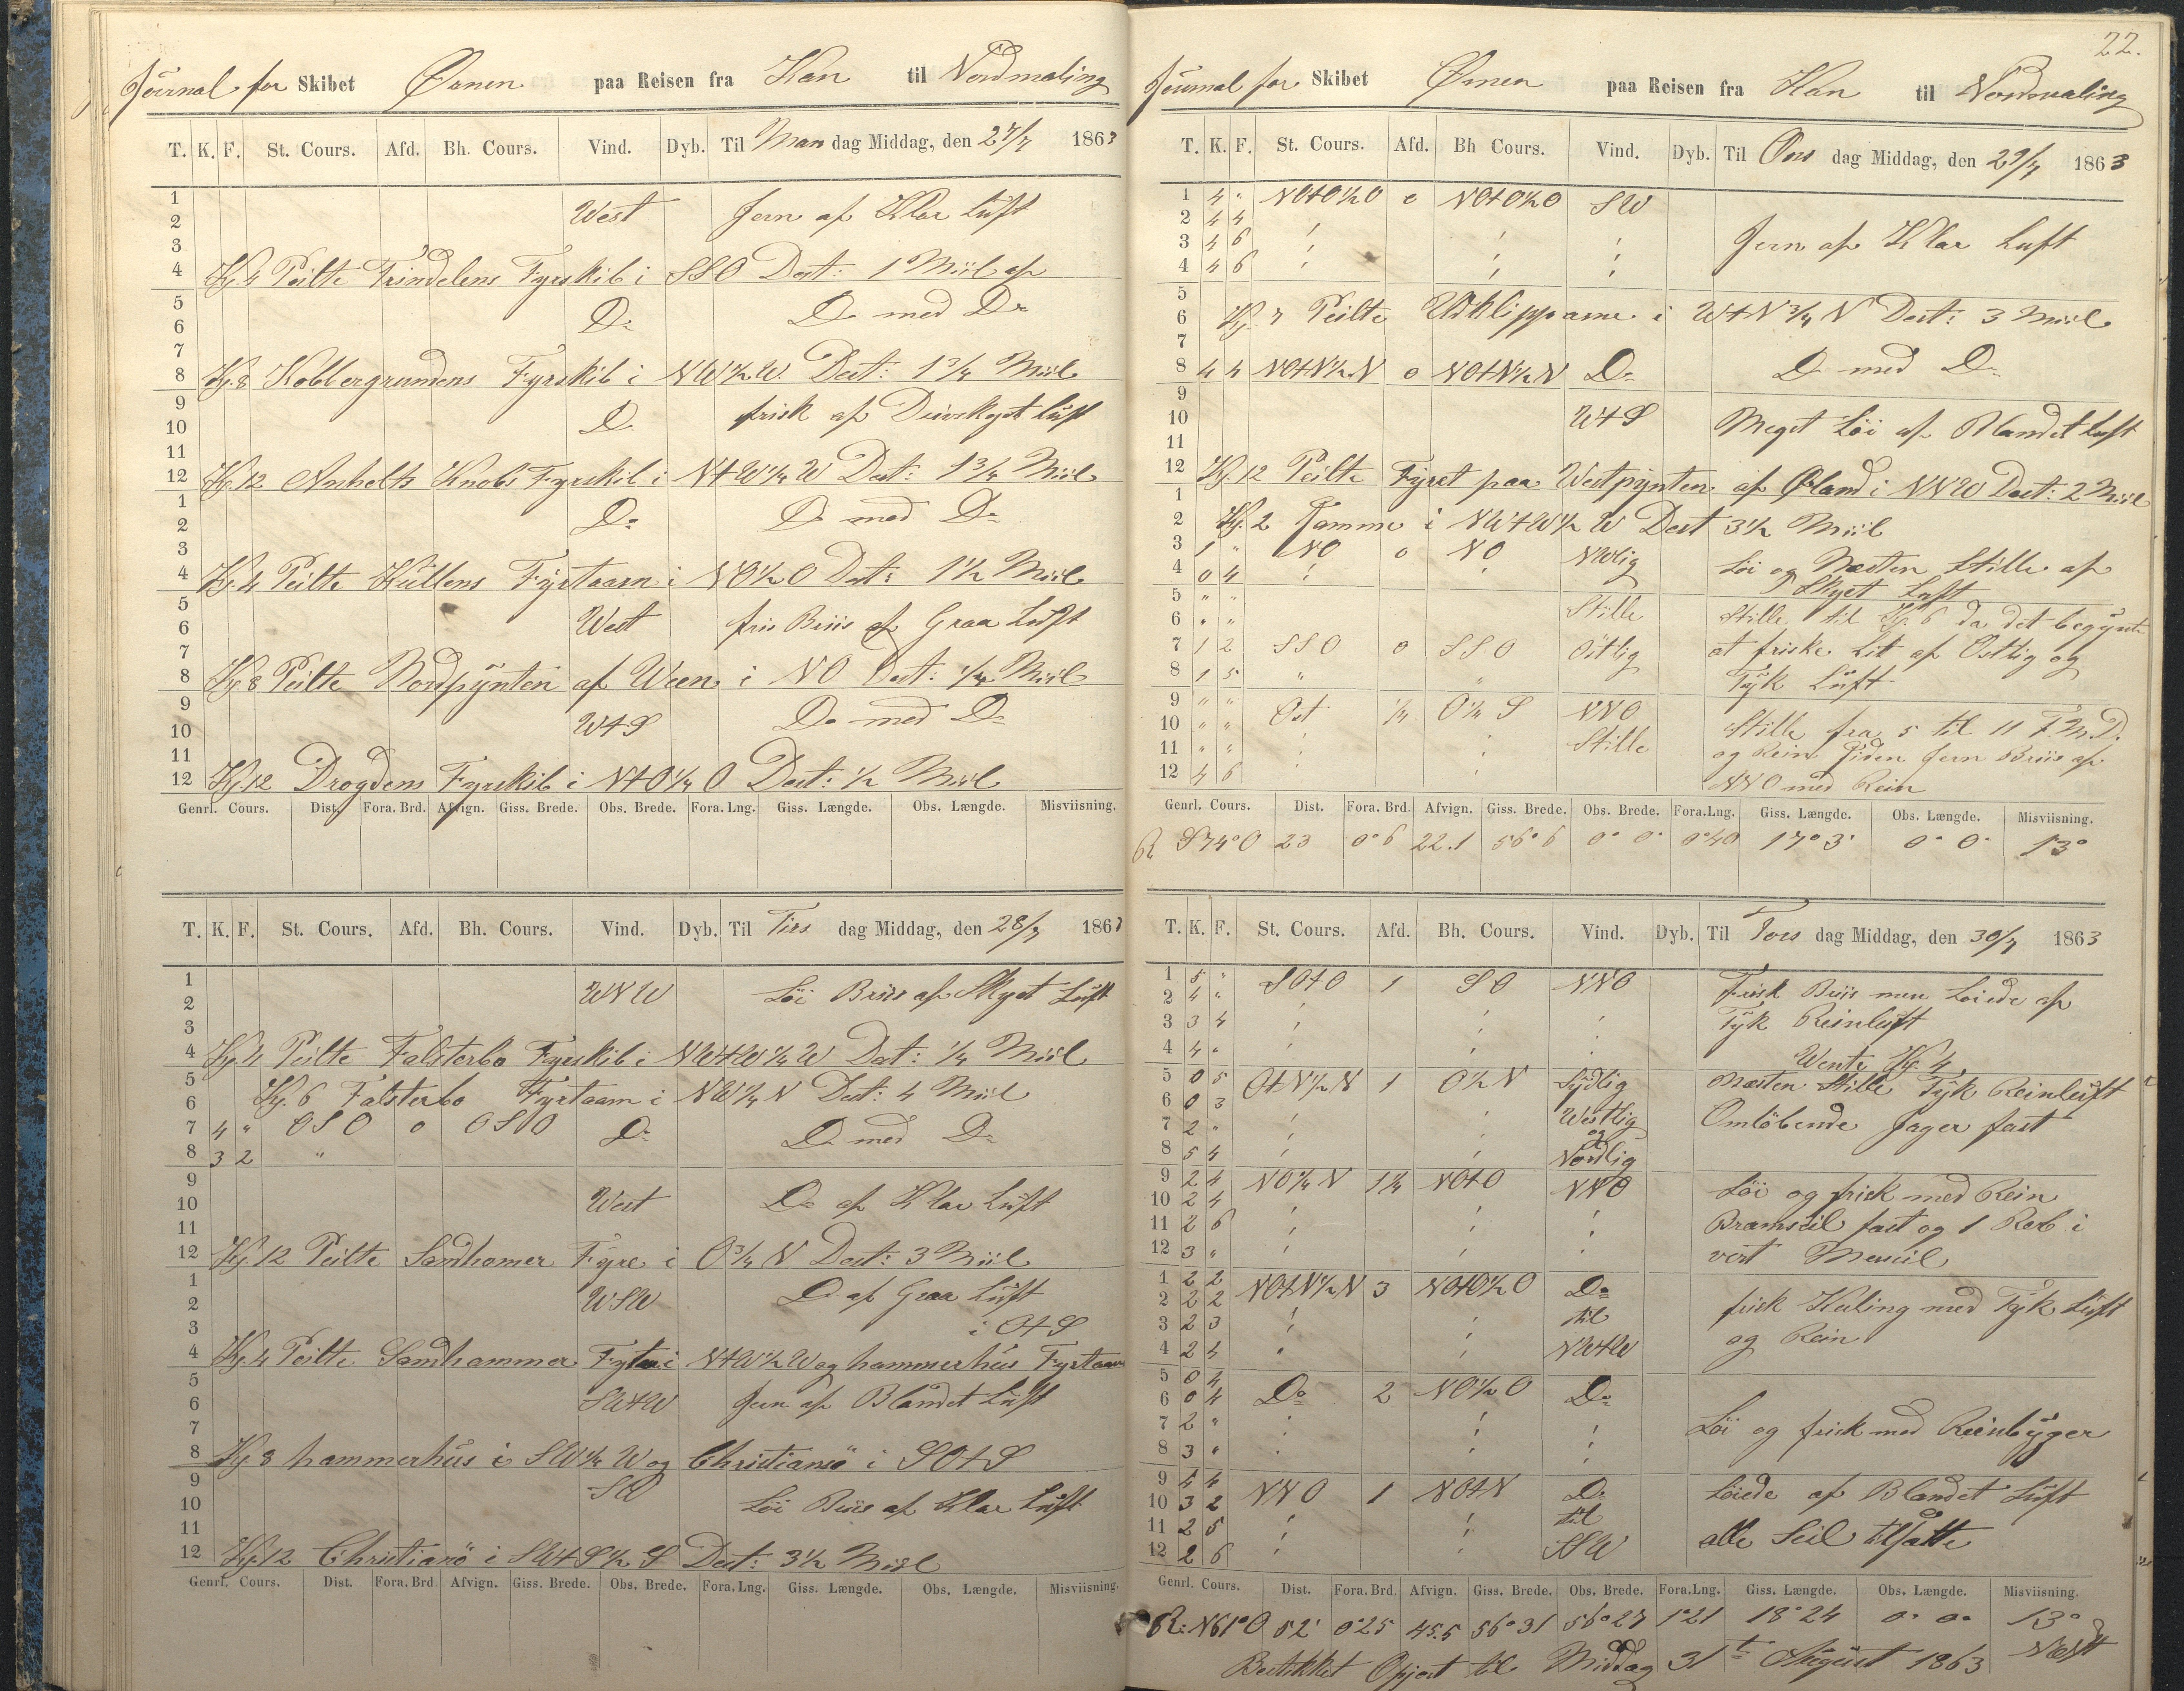 Journal for Skibet Ørnen paa Reisen fra Kan til Nordmaling
T. K. F. St. Cours. Afd. Bh. Cours. Vind. Dyb. Til Man dag Middag, den 27/7 1863
1
2 West Jevn af Klar Luft
3
4 Kl. 4 Peilte Trindelens Fyrskib i SSO Dest: 1 Miil af
5
6 Do Do med Do
7
8 Kl. 8 Kobbergrundens Fyrskib i NW½W. Dest: 1¾ Miil
9
10 Do frisk af Deivskyet Luft
11
12 Kl. 12 Anholts Knobs Fyrskib i NtW¼W Dest: 1¾ Miil
1
2 Do Do med Do
3
4 Kl. 4 Peilte Kullens Fyrtaarn i NO½O Dest: 1½ Miil
5
6 West fris Briis af Graa Luft
7
8 Kl. 8 Peilte Nordpynten af Ween i NO Dest: ¼ Miil
9
10 WtS Do med Do
11
12 Kl. 12 Drogdens Fyrskib i NtO¼O Dest: ½ Miil
Genrl. Cours. Dist. Fora. Brd. Afvign. Giss. Brede. Obs. Brede. Fora. Lng. Giss. Længde. Obs. Længde. Misviisning.
T. K. F. St. Cours. Afd. Bh. Cours. Vind. Dyb. Til Tirs dag Middag, den 28/7 1863
1
2 WNW Löi Briis af Skyet Luft
3
4 Kl. 4 Peilte Falsterbo Fyrskib i NWtW¼W Dest: ¼ Miil
5
6 Kl. 6 Falsterbo Fyrtaarn i NW¼N Dest: 4 Miil
7 4 " OSO 0 OSO Do Do med Do
8 3 2 "
9
10 West Do af Klar Luft
11
12 Kl. 12 Peilte Sandhamer Fyre i O¾N Dest: 3 Miil
1
2 WSW Do af Graa Luft
3 i OtS
4 Kl. 4 Peilte Sandhammer Fyrtaa i NtW½W og hammerhus Fyrtaarn
5
6 SWtW Jevn af Blandet Luft
7
8 Kl. 8 hammerhus i SW¼W og Christiansö i SOtS
9 SW
10 Löi Briis af Klar Luft
11
12 Kl. 12 Christiansö i SWtS½S Dest: 3½ Miil
Genrl. Cours. Dist. Fora. Brd. Afvign. Giss. Brede. Obs. Brede. Fora. Lng. Giss. Længde. Obs. Længde. Misviisning.
22.
Journal for Skibet Ørnen paa Reisen fra Kan til Nordmaling
T. K. F. St. Cours. Afd. Bh Cours. Vind. Dyb. Til Ons dag Middag, den 29/7 1863
1 4 " NOtO½O 0 NOtO½O SW
2 4 4
3 4 6 Jevn af Klar Luft
4 4 6
5
6 Kl. 7 Peilte Udklipparne i WtN¾N Dest: 3 Miil
7
8 4 4 NOtN½N 0 NOtN½N Do Do med Do
9
10 WtS Meget Löi af Blandet Luft
11
12 Kl. 12 Peilte Fyret paa Westpynten af Øland i NNW Dest: 2 Miil
1
2 Kl. 2 Samme i NWtW½W Dest 3½ Miil
3 1 " NO 0 NO NWlig Löi og Næsten Stille af
4 0 4 Skyet Luft
5 " "
6 " " Stille Stille til Kl. 6 da det begynte
7 1 2 SSO 0 SSO Östlig at friske Lit af Ostlig og
8 1 5 " " Tyk Luft
9 " " Ost ¼ O¼S NNO
10 " " Stille Stille fra 5 til 11 F.M.D.
11 " " og Rein Siden Jevn Briis af
12 4 6 NNO med Rein
Genrl. Cours. Dist. Fora. Brd. Afvign. Giss. Brede. Obs. Brede. Fora. Lng. Giss. Længde. Obs. Længde. Misviisning.
R S74°O 23 0°6 22.1 56°6 0° 0° 0°40 17°3' 0° 0° 13°
T. K. F. St. Cours. Afd. Bh. Cours. Vind. Dyb. Til Tors dag Middag, den 30/7 1863
1 5 " SOtO 1 SO NNO Frisk Briis men Löiede af
2 4 "
3 3 4 Tyk Reinluft
4 4 " Wente Kl. 4
5 0 5 OtN½N 1 O½N Sydlig Næsten Stille Tyk Reinluft
6 0 3
7 2 " Westlig Omlöbende Jager fast
8 5 4 og Nordlig
9 2 4 NO¼N 1¼ NOtO NNO Löi og frisk med Rein
10 2 4
11 2 6 Bramseil fast og 1 Reb i
12 3 " vert Merseil
1 2 2 NOtN½N 3 NOtO½O Do
2 2 2 til frisk Kuling med Tyk Luft
3 2 3 og Rein
4 2 4 NWtW
5 0 4
6 0 4 Do 2 NO½O Do
7 2 " Löi og frisk med Reinbyger
8 3 "
9 4 4 NNO 1 NOtN Do Löiede af Blandet Luft
10 3 2
11 2 5 til alle Seil tilsatte
12 2 6 SSW
Genrl. Cours. Dist. Fora. Brd. Afvign. Giss. Brede. Obs. Brede. Fora. Lng. Giss. Længde. Obs. Længde. Misviisning.
R: N61°O 52' 0°25 45.5 56°31 56°27 1°21 18°24 0° 0° 13°
Bestikket Opjort til Middag 31te August 1863